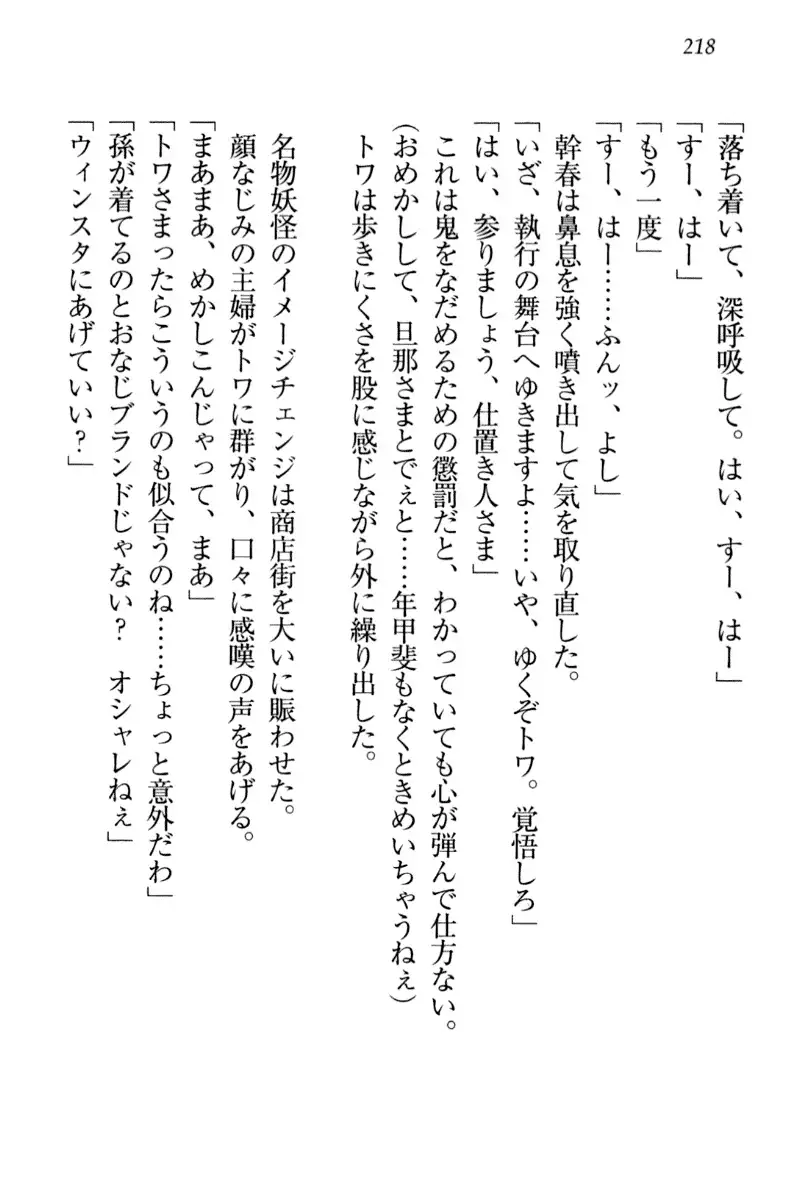 218
「落ち着いて、深呼吸して。はい、すー、はー」
「すー、はー」
「もう一度」
「すー、はー……ふんッ、よし」
幹春は鼻息を強く噴き出して気を取り直した。
「いざ、執行の舞台へゆきますよ……いや、ゆくぞトワ。覚悟しろ」
「はい、参りましょう、仕置き人さま」
これは鬼をなだめるための懲罰だと、わかっていても心が弾んで仕方ない。
(おめかしして、旦那さまとでぇと……年甲斐もなくときめいちゃうねぇ)
トワは歩きにくさを股に感じながら外に繰り出した。
名物妖怪のイメージチェンジは商店街を大いに賑わせた。
顔なじみの主婦がトワに群がり、口々に感嘆の声をあげる。
「まあまあ、めかしこんじゃって、まあ」
「トワさまったらこういうのも似合うのね……ちょっと意外だわ」
「孫が着てるのとおなじブランドじゃない？　オシャレねぇ」
「ウィンスタにあげていい？」